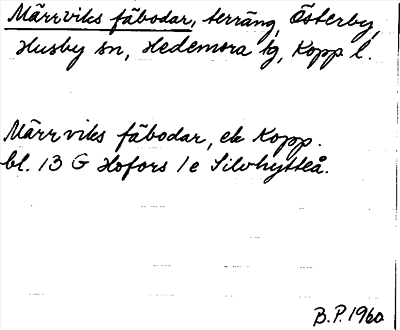 Märrviks fäbodar, terräng, Österby,
Husby sn, Hedemora tg, Kopp l.
Märrviks fäbodar, ek Kopp.
bl. 13 G Hofors 1e Silvhytteå.
B.P. 1960